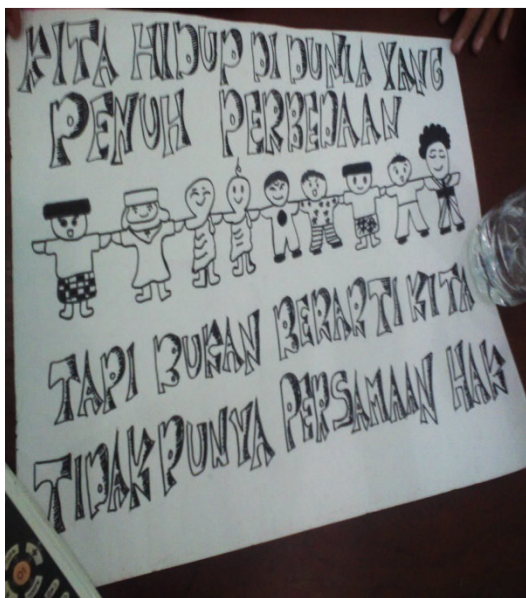 KITA HIDUP DI DUNIA YANG
PENUH PERBEDAAN
TAPI BUKAN BERARTI KITA
TIDAK PUNYA PERSAMAAN HAK